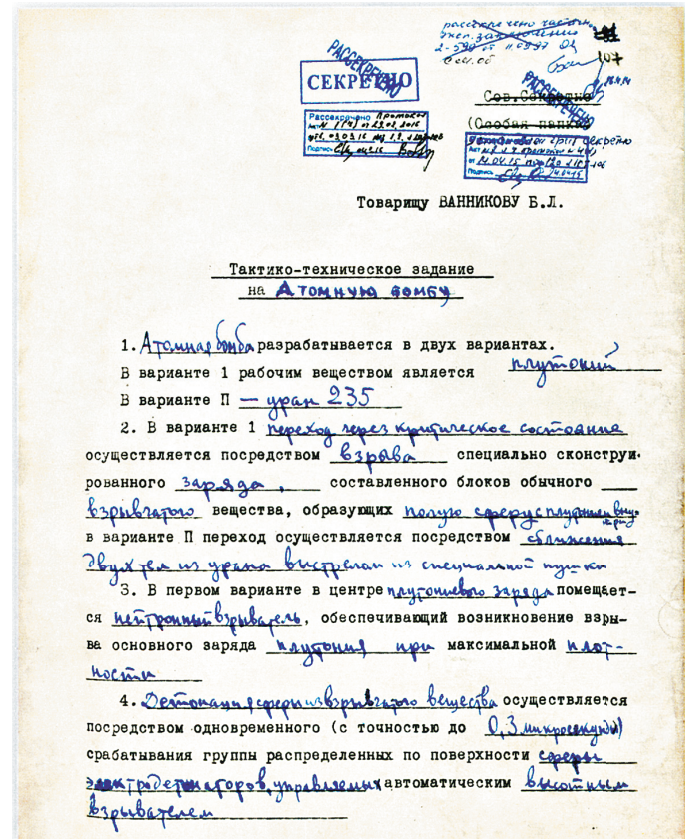 рассекречено частично
2-590 от 11.09.97
107
РАССЕКРЕЧЕНО
СЕКРЕТНО
РАССЕКРЕЧЕНО
Сов.Секретно
(Особая папка)
Рассекречено Протокол
Подпись
Подпись
Товарищу ВАННИКОВУ Б.Л.
Тактико-техническое задание
на Атомную бомбу
1. Атомная бомба разрабатывается в двух вариантах.
В варианте 1 рабочим веществом является плутоний
В варианте П — уран 235
2. В варианте 1 переход через критическое состояние
осуществляется посредством взрыва специально сконструи-
рованного заряда, составленного блоков обычного
взрывчатого вещества, образующих полую сферу с плутонием внутри
в варианте П переход осуществляется посредством сближения
двух тел из урана выстрелом из специальной пушки
3. В первом варианте в центре плутониевого заряда помещает-
ся нейтронный взрыватель, обеспечивающий возникновение взры-
ва основного заряда плутония при максимальной плот-
ности
4. Детонация сферы из взрывчатого вещества осуществляется
посредством одновременного (с точностью до 0,3 микросекунды)
срабатывания группы распределенных по поверхности сферы
электродетонаторов, управляемых автоматическим высотным
взрывателем